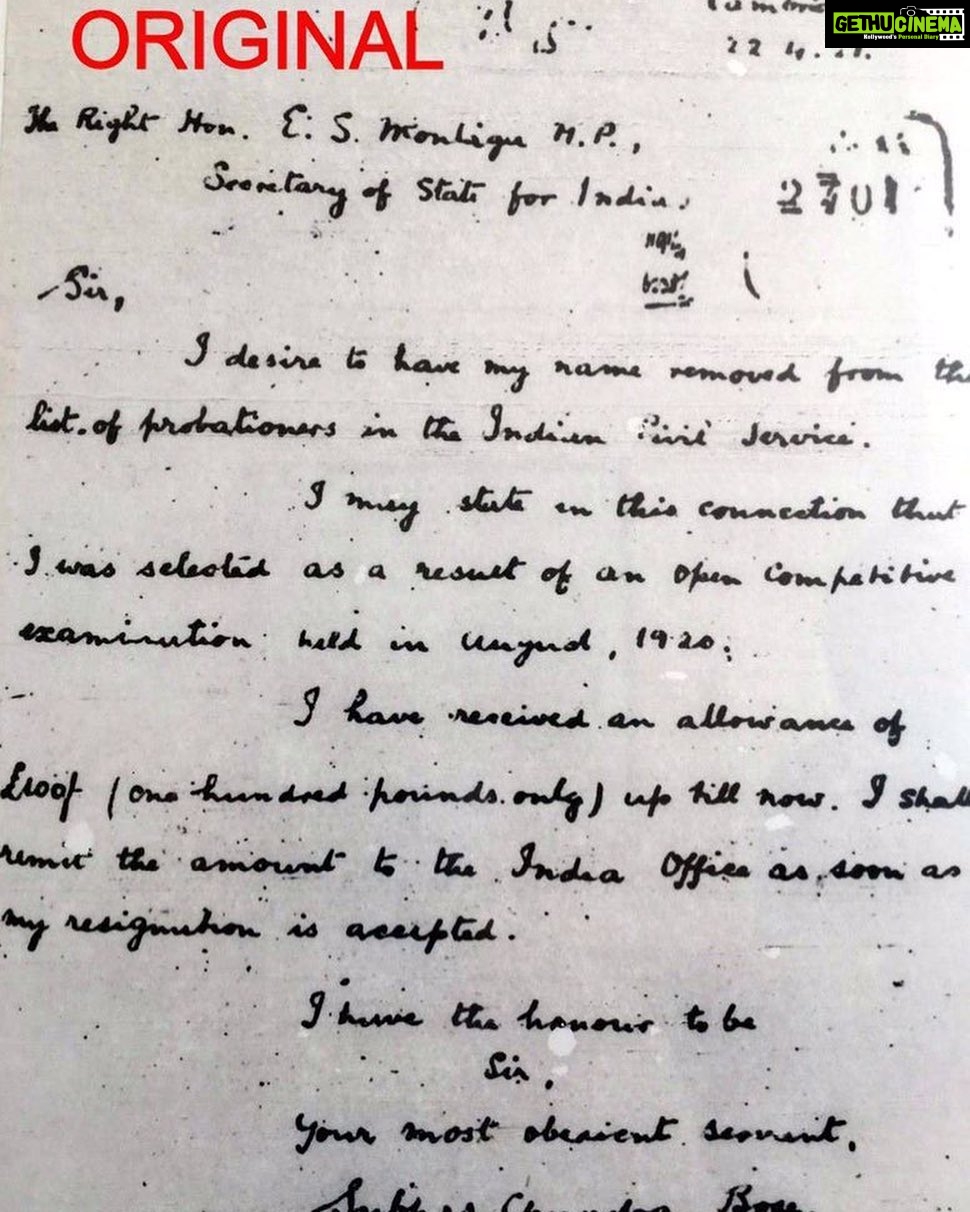 ORIGINAL
GETHUCINEMA
Kollywood's Personal Diary
22.4.21.
The Right Hon. E. S. Montagu M.P.,
Secretary of State for India.
2701
Sir,
I desire to have my name removed from the
list of probationers in the Indian Civil Service.
I may state in this connection that
I was selected as a result of an open competitive
examination held in August, 1920.
I have received an allowance of
£100/- (one hundred pounds only) up till now. I shall
remit the amount to the India Office as soon as
my resignation is accepted.
I have the honour to be
Sir,
Your most obedient servant,
Subhas Chandra Bose